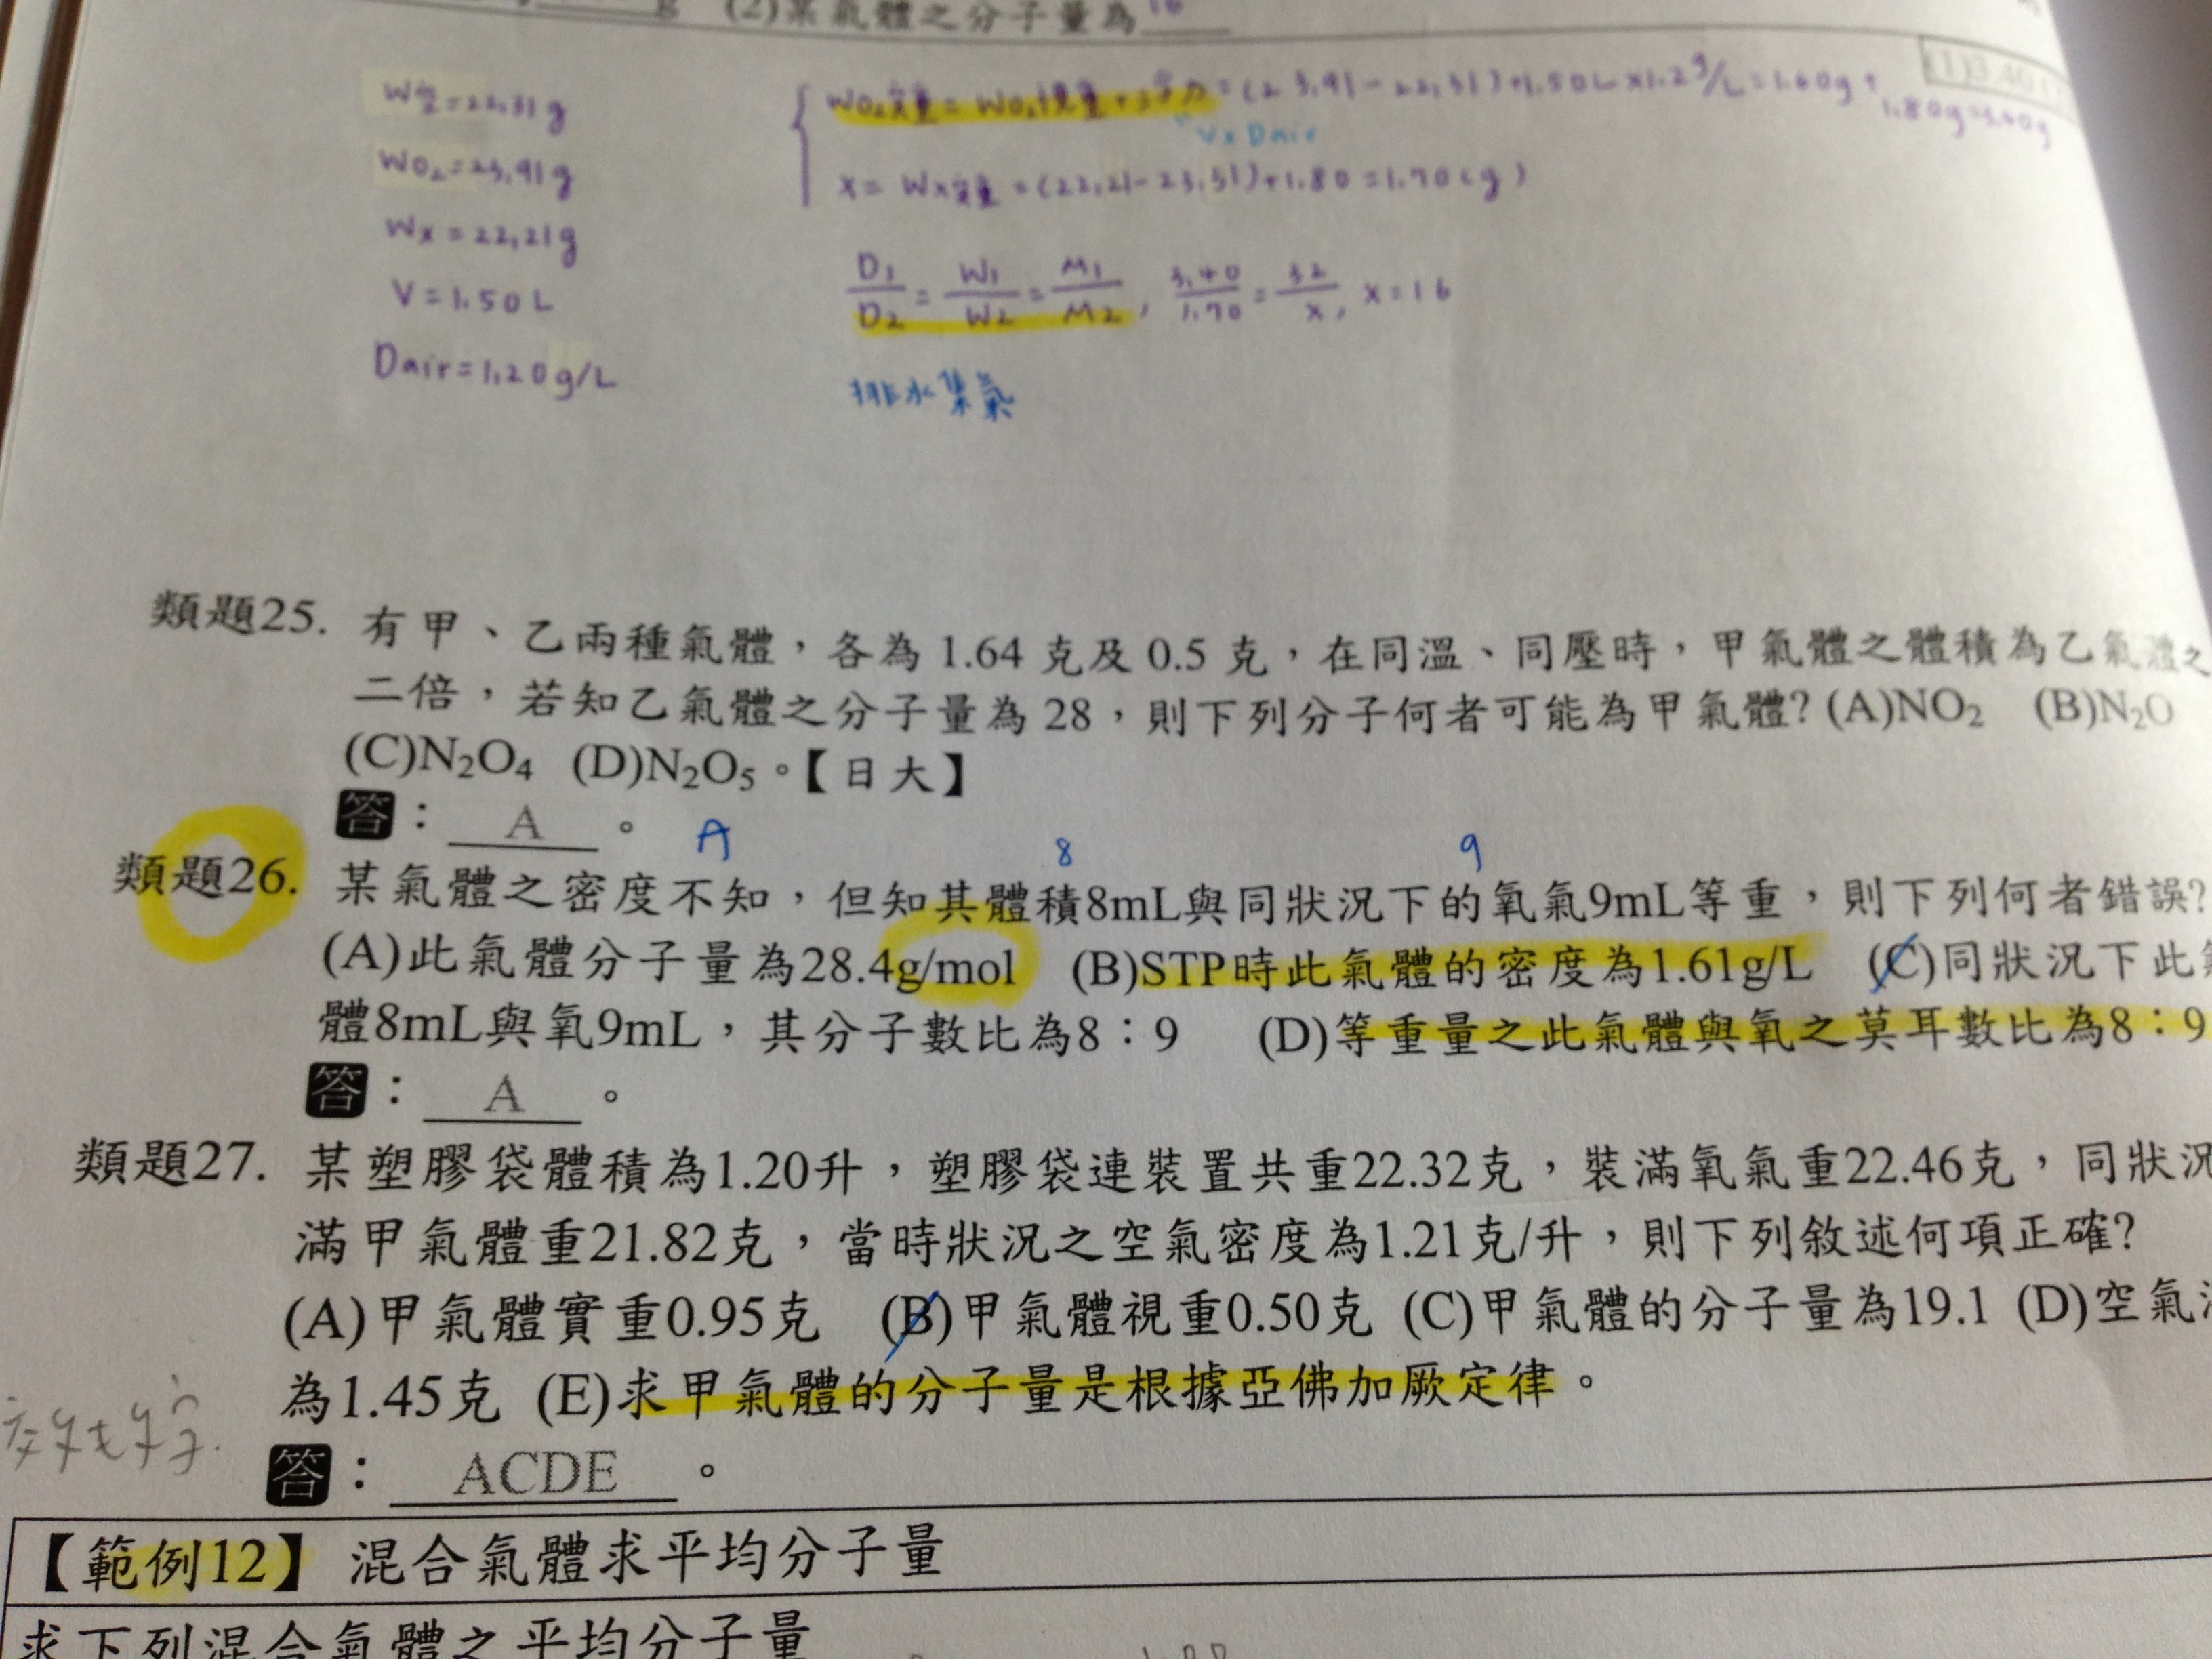 (2)某氣體之分子量為 16
W空=22.31g
WO₂=23.91g
Wx=22.21g
V=1.50L
Dair=1.20g/L
WO₂實重=WO₂視重+浮力=(23.91-22.31)+1.50L×1.2g/L=1.60g+
1.80g=3.40g
V×Dair
x=Wx實重=(22.21-23.51)+1.80=1.70(g)
D1/D2=W1/W2=M1/M2, 3.40/1.70=32/x, x=16
排水集氣
類題25. 有甲、乙兩種氣體,各為 1.64 克及 0.5 克,在同溫、同壓時,甲氣體之體積為乙氣體之
二倍,若知乙氣體之分子量為 28,則下列分子何者可能為甲氣體? (A)NO₂ (B)N₂O
(C)N₂O₄ (D)N₂O₅。【日大】
答: A 。
A 8 9
類題26. 某氣體之密度不知,但知其體積8mL與同狀況下的氧氣9mL等重,則下列何者錯誤?
(A)此氣體分子量為28.4g/mol (B)STP時此氣體的密度為1.61g/L (C)同狀況下此
體8mL與氧9mL,其分子數比為8:9 (D)等重量之此氣體與氧之莫耳數比為8:9
答: A 。
類題27. 某塑膠袋體積為1.20升,塑膠袋連裝置共重22.32克,裝滿氧氣重22.46克,同狀況
滿甲氣體重21.82克,當時狀況之空氣密度為1.21克/升,則下列敘述何項正確?
(A)甲氣體實重0.95克 (B)甲氣體視重0.50克 (C)甲氣體的分子量為19.1 (D)空氣
為1.45克 (E)求甲氣體的分子量是根據亞佛加厥定律。
答: ACDE 。
【範例12】混合氣體求平均分子量
求下列混合氣體之平均分子量